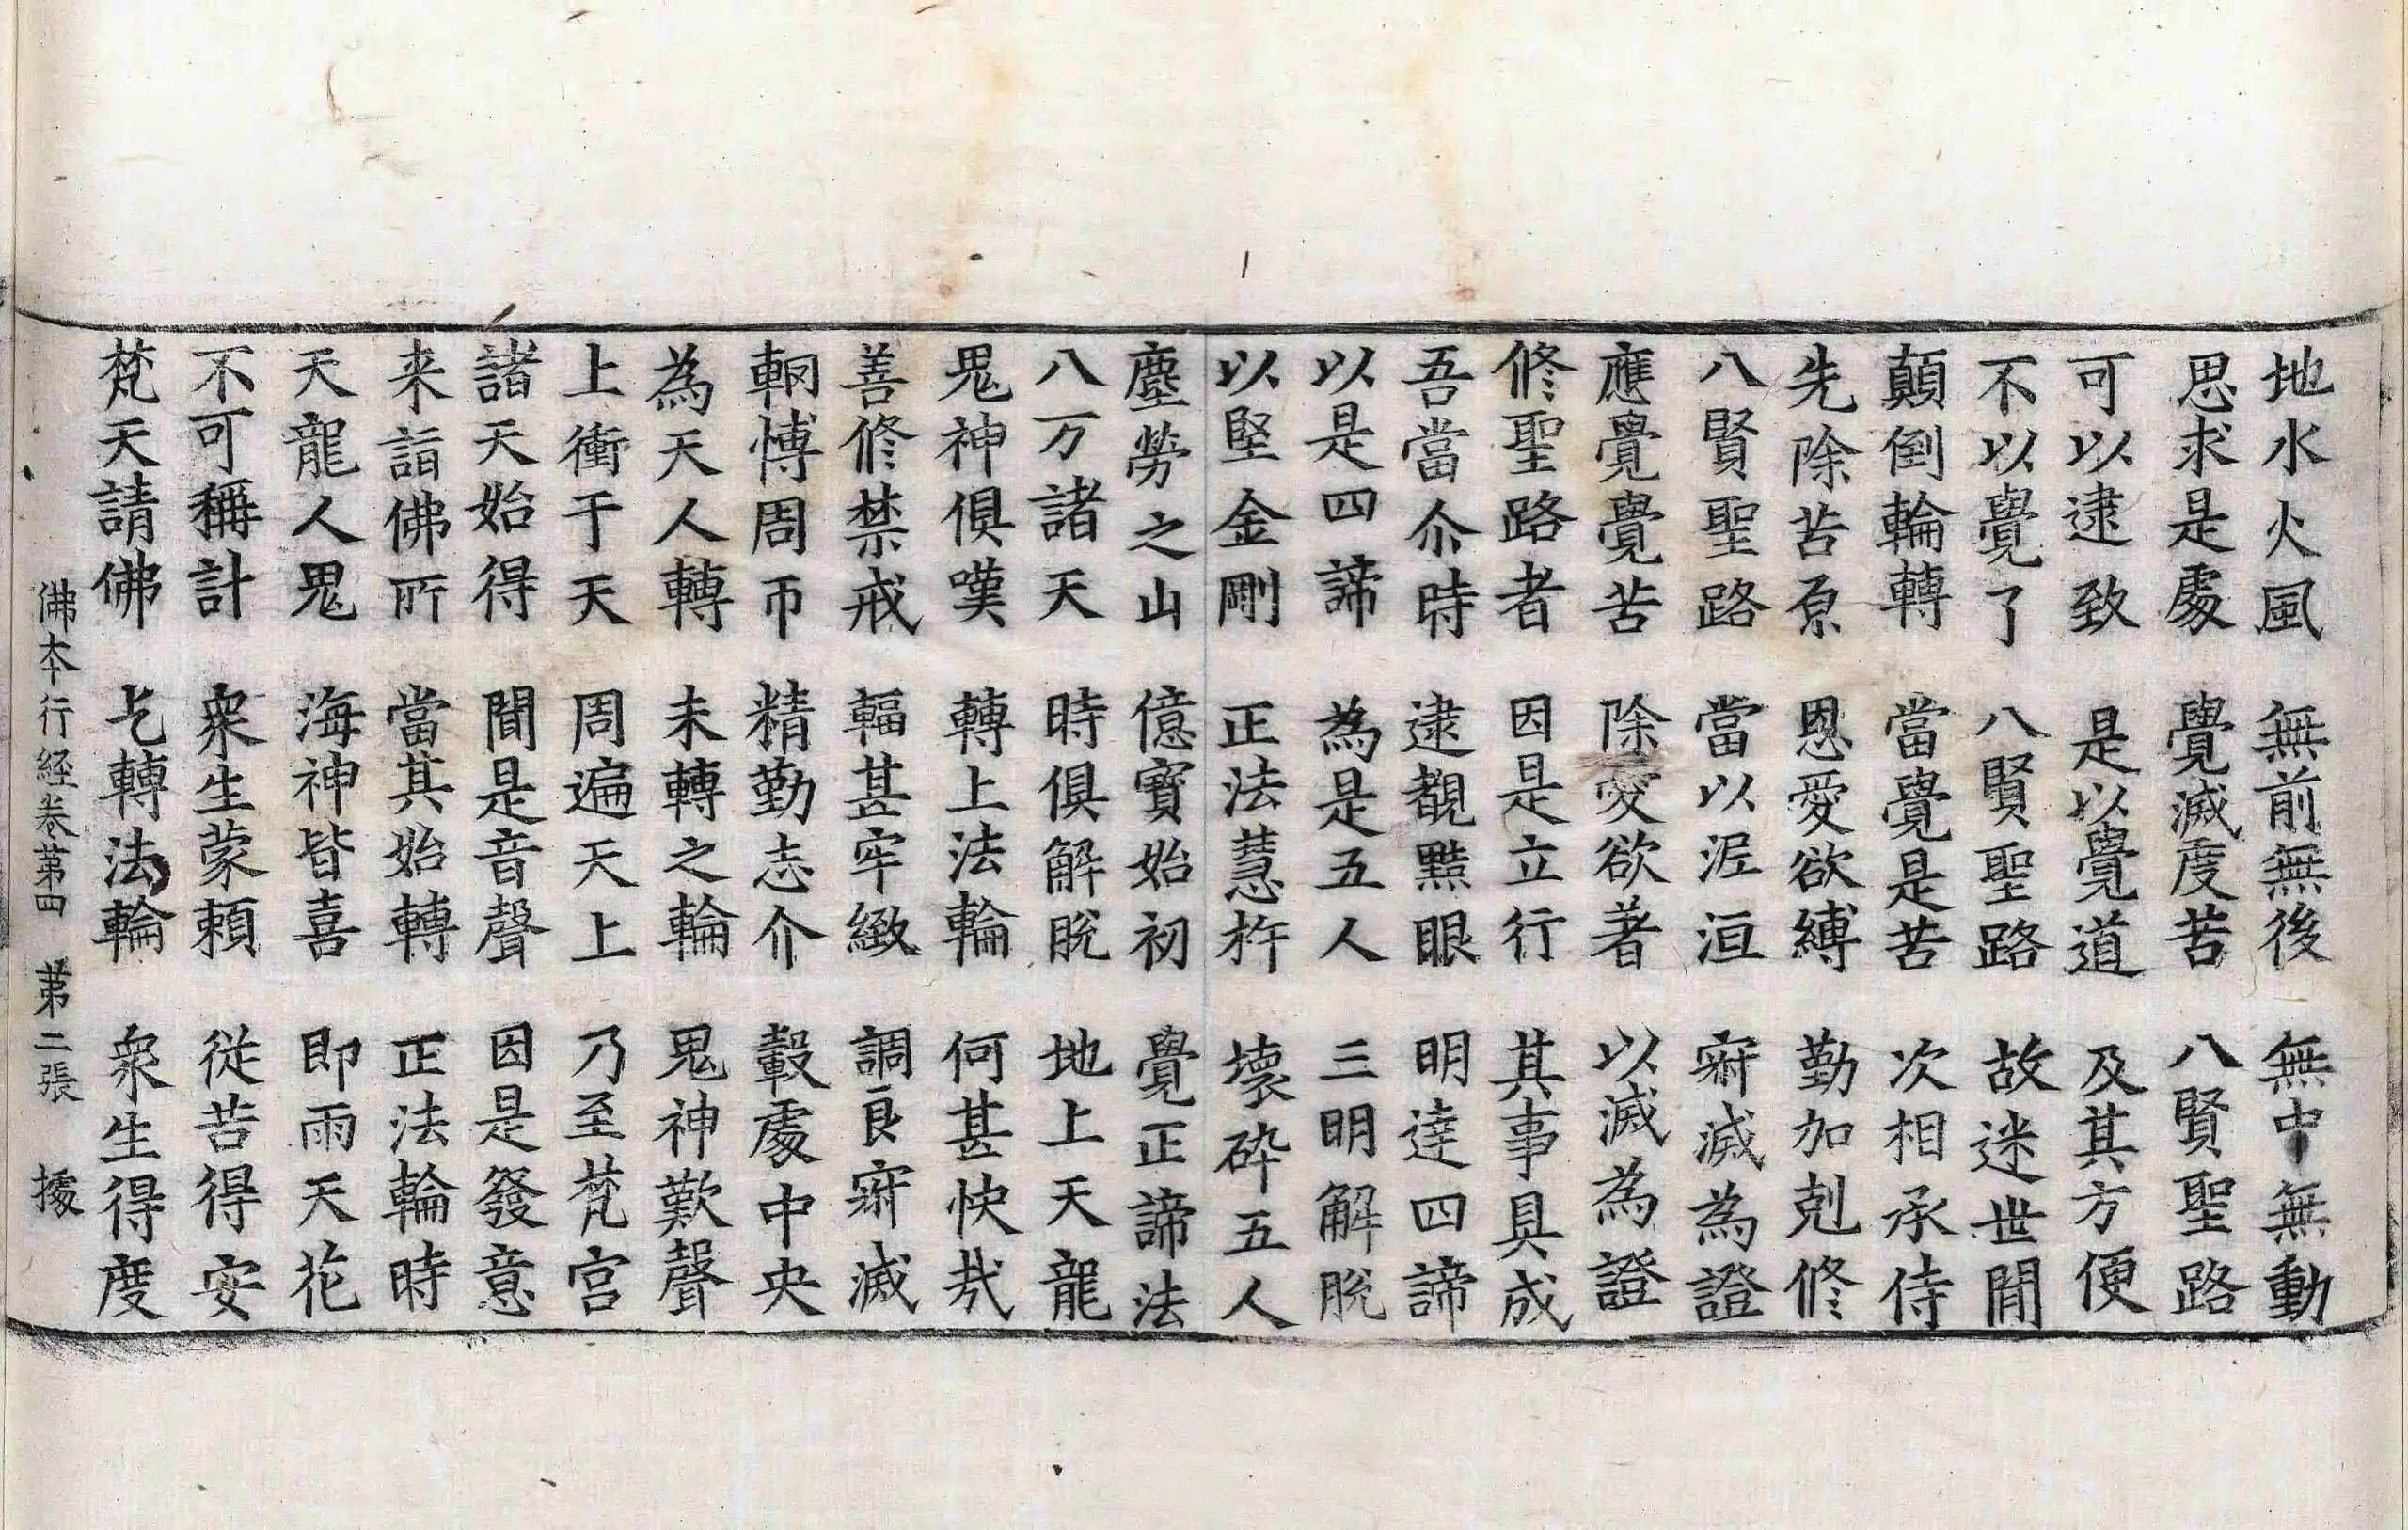 地水火風 無前無後 無中無動
思求是處 覺滅度苦 八賢聖路
可以逮致 是以覺道 及其方便
不以覺了 八賢聖路 故迷世閒
顛倒輪轉 當覺是苦 次相承侍
先除苦原 恩愛欲縛 勤加剋修
八賢聖路 當以泥洹 寂滅為證
應覺覺苦 除愛欲著 以滅為證
修聖路者 因是立行 其事具成
吾當尒時 逮覩黠眼 明達四諦
以是四諦 為是五人 三明解脫
以堅金剛 正法慧杵 壞碎五人
塵勞之山 億寶始初 覺正諦法
八万諸天 時俱解脫 地上天龍
鬼神俱嘆 轉上法輪 何甚快哉
善修禁戒 輻甚牢緻 調良寂滅
輞愽周帀 精勤志介 轂處中央
為天人轉 未轉之輪 鬼神歎聲
上衝于天 周遍天上 乃至梵宮
諸天始得 聞是音聲 因是發意
来詣佛所 當其始轉 正法輪時
天龍人鬼 海神皆喜 即雨天花
不可稱計 衆生蒙賴 從苦得安
梵天請佛 乞轉法輪 衆生得度
佛本行経卷第四 第二張 據